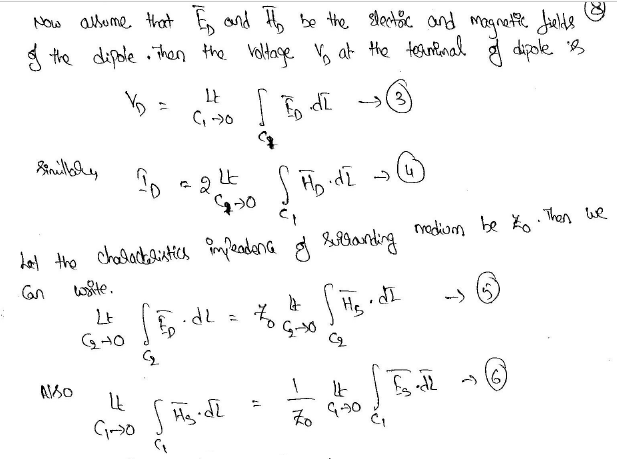 Now assume that E̅_D and H̅_D be the electric and magnetic fields (8)
of the dipole. Then the voltage V_D at the terminal of dipole is
V_D = Lt C₁→0 ∫_C₂ E̅_D · dl̅ → (3)
Similarly I_D = 2 Lt C₂→0 ∫_C₁ H̅_D · dl̅ → (4)
Let the characteristics impedance of surrounding medium be Z₀. Then we
can write.
Lt C₂→0 ∫_C₂ E̅_D · dl = Z₀ Lt C₂→0 ∫_C₂ H̅_S · dl̅ → (5)
Also Lt C₁→0 ∫_C₁ H̅_S · dl̅ = 1/Z₀ Lt C₁→0 ∫_C₁ E̅_S · dl̅ → (6)